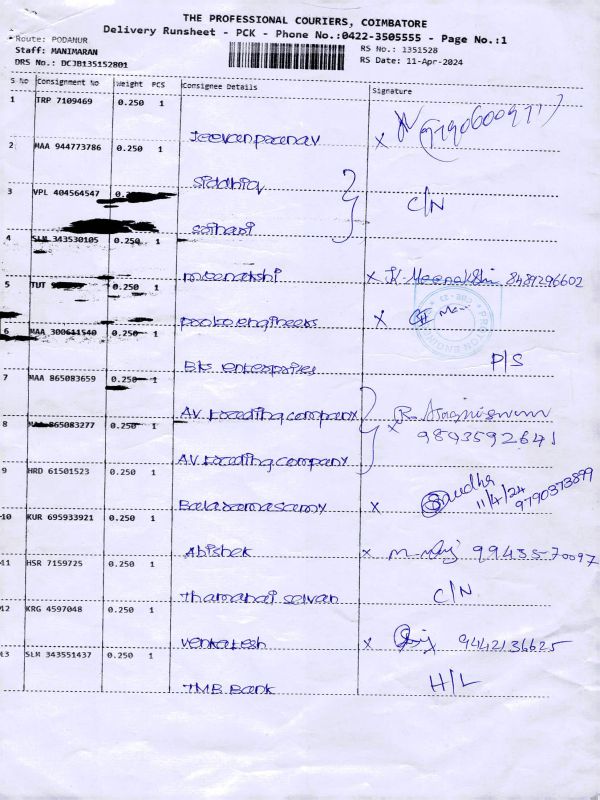 THE PROFESSIONAL COURIERS, COIMBATORE
Delivery Runsheet - PCK - Phone No.:0422-3505555 - Page No.:1
Route: PODANUR
Staff: MANIMARAN
RS No.: 1351528
DRS No.: DCJB135152801
RS Date: 11-Apr-2024
S No Consignment No Weight PCS Consignee Details Signature
1 TRP 7109469 0.250 1
Jeevanpranav x
2 MAA 944773786 0.250 1
Siddhiq
3 VPL 404564547
C/N
srihari
4 SLM 343530105 0.250 1
meenakshi x K. Meenakshi 8489296602
5 TUT 0.250 1
pooko engineers x
6 MAA 300611540 0.250 1
P/S
Bks enterprises
7 MAA 865083659 0.250 1
AV trading company x
9843592641
8 MAA 865083277 0.250 1
AV trading company
9 HRD 61501523 0.250 1
Balaramasamy x 11/4/24 9790373899
10 KUR 695933921 0.250 1
Abishek x 99435-70097
11 HSR 7159725 0.250 1
Thamarai selvan C/N
12 KRG 4597048 0.250 1
venkatesh x 9442136625
13 SLM 343551437 0.250 1
TMB Bank H/L